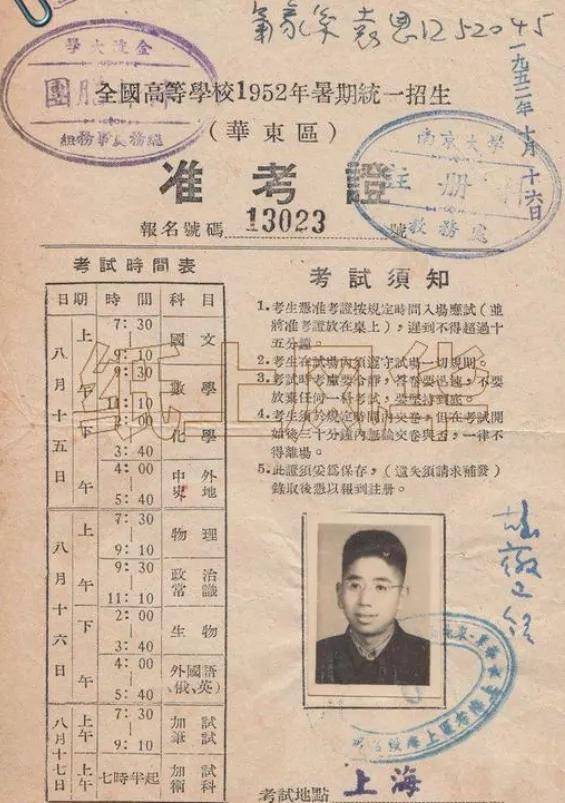 氣象系 袁恩 52045
一九五二年十月十六日
金陵大學
團
總務處事務組
全國高等學校1952年暑期統一招生
（華東區）
南京大學
註冊
教務處
准考證
報名號碼 13023 號
考試時間表
日期 時間 科目
八月十五日
上午
7:30—9:10 國文
9:30—11:10 數學
下午
2:00—3:40 化學
4:00—5:40 中外史地
八月十六日
上午
7:30—9:10 物理
9:30—11:10 政治常識
下午
2:00—3:40 生物
4:00—5:40 外國語（俄、英）
八月十七日
上午
7:30—9:10 加試筆試
上午
七時半起 加試術科
考試須知
1.考生憑准考證按規定時間入場應試（並
將准考證放在桌上），遲到不得超過十
五分鐘。
2.考生在試場內須遵守試場一切規則。
3.考試時考慮要冷靜，答卷要迅速，不要
放棄任何一科考試，要堅持到底。
4.考生須於規定時間內交卷，但在考試開
始後三十分鐘內無論交卷與否，一律不
得離場。
5.此證須妥爲保存，（遺失須請求補發）
錄取後憑以報到註冊。
紙上风华
考試地點 上海